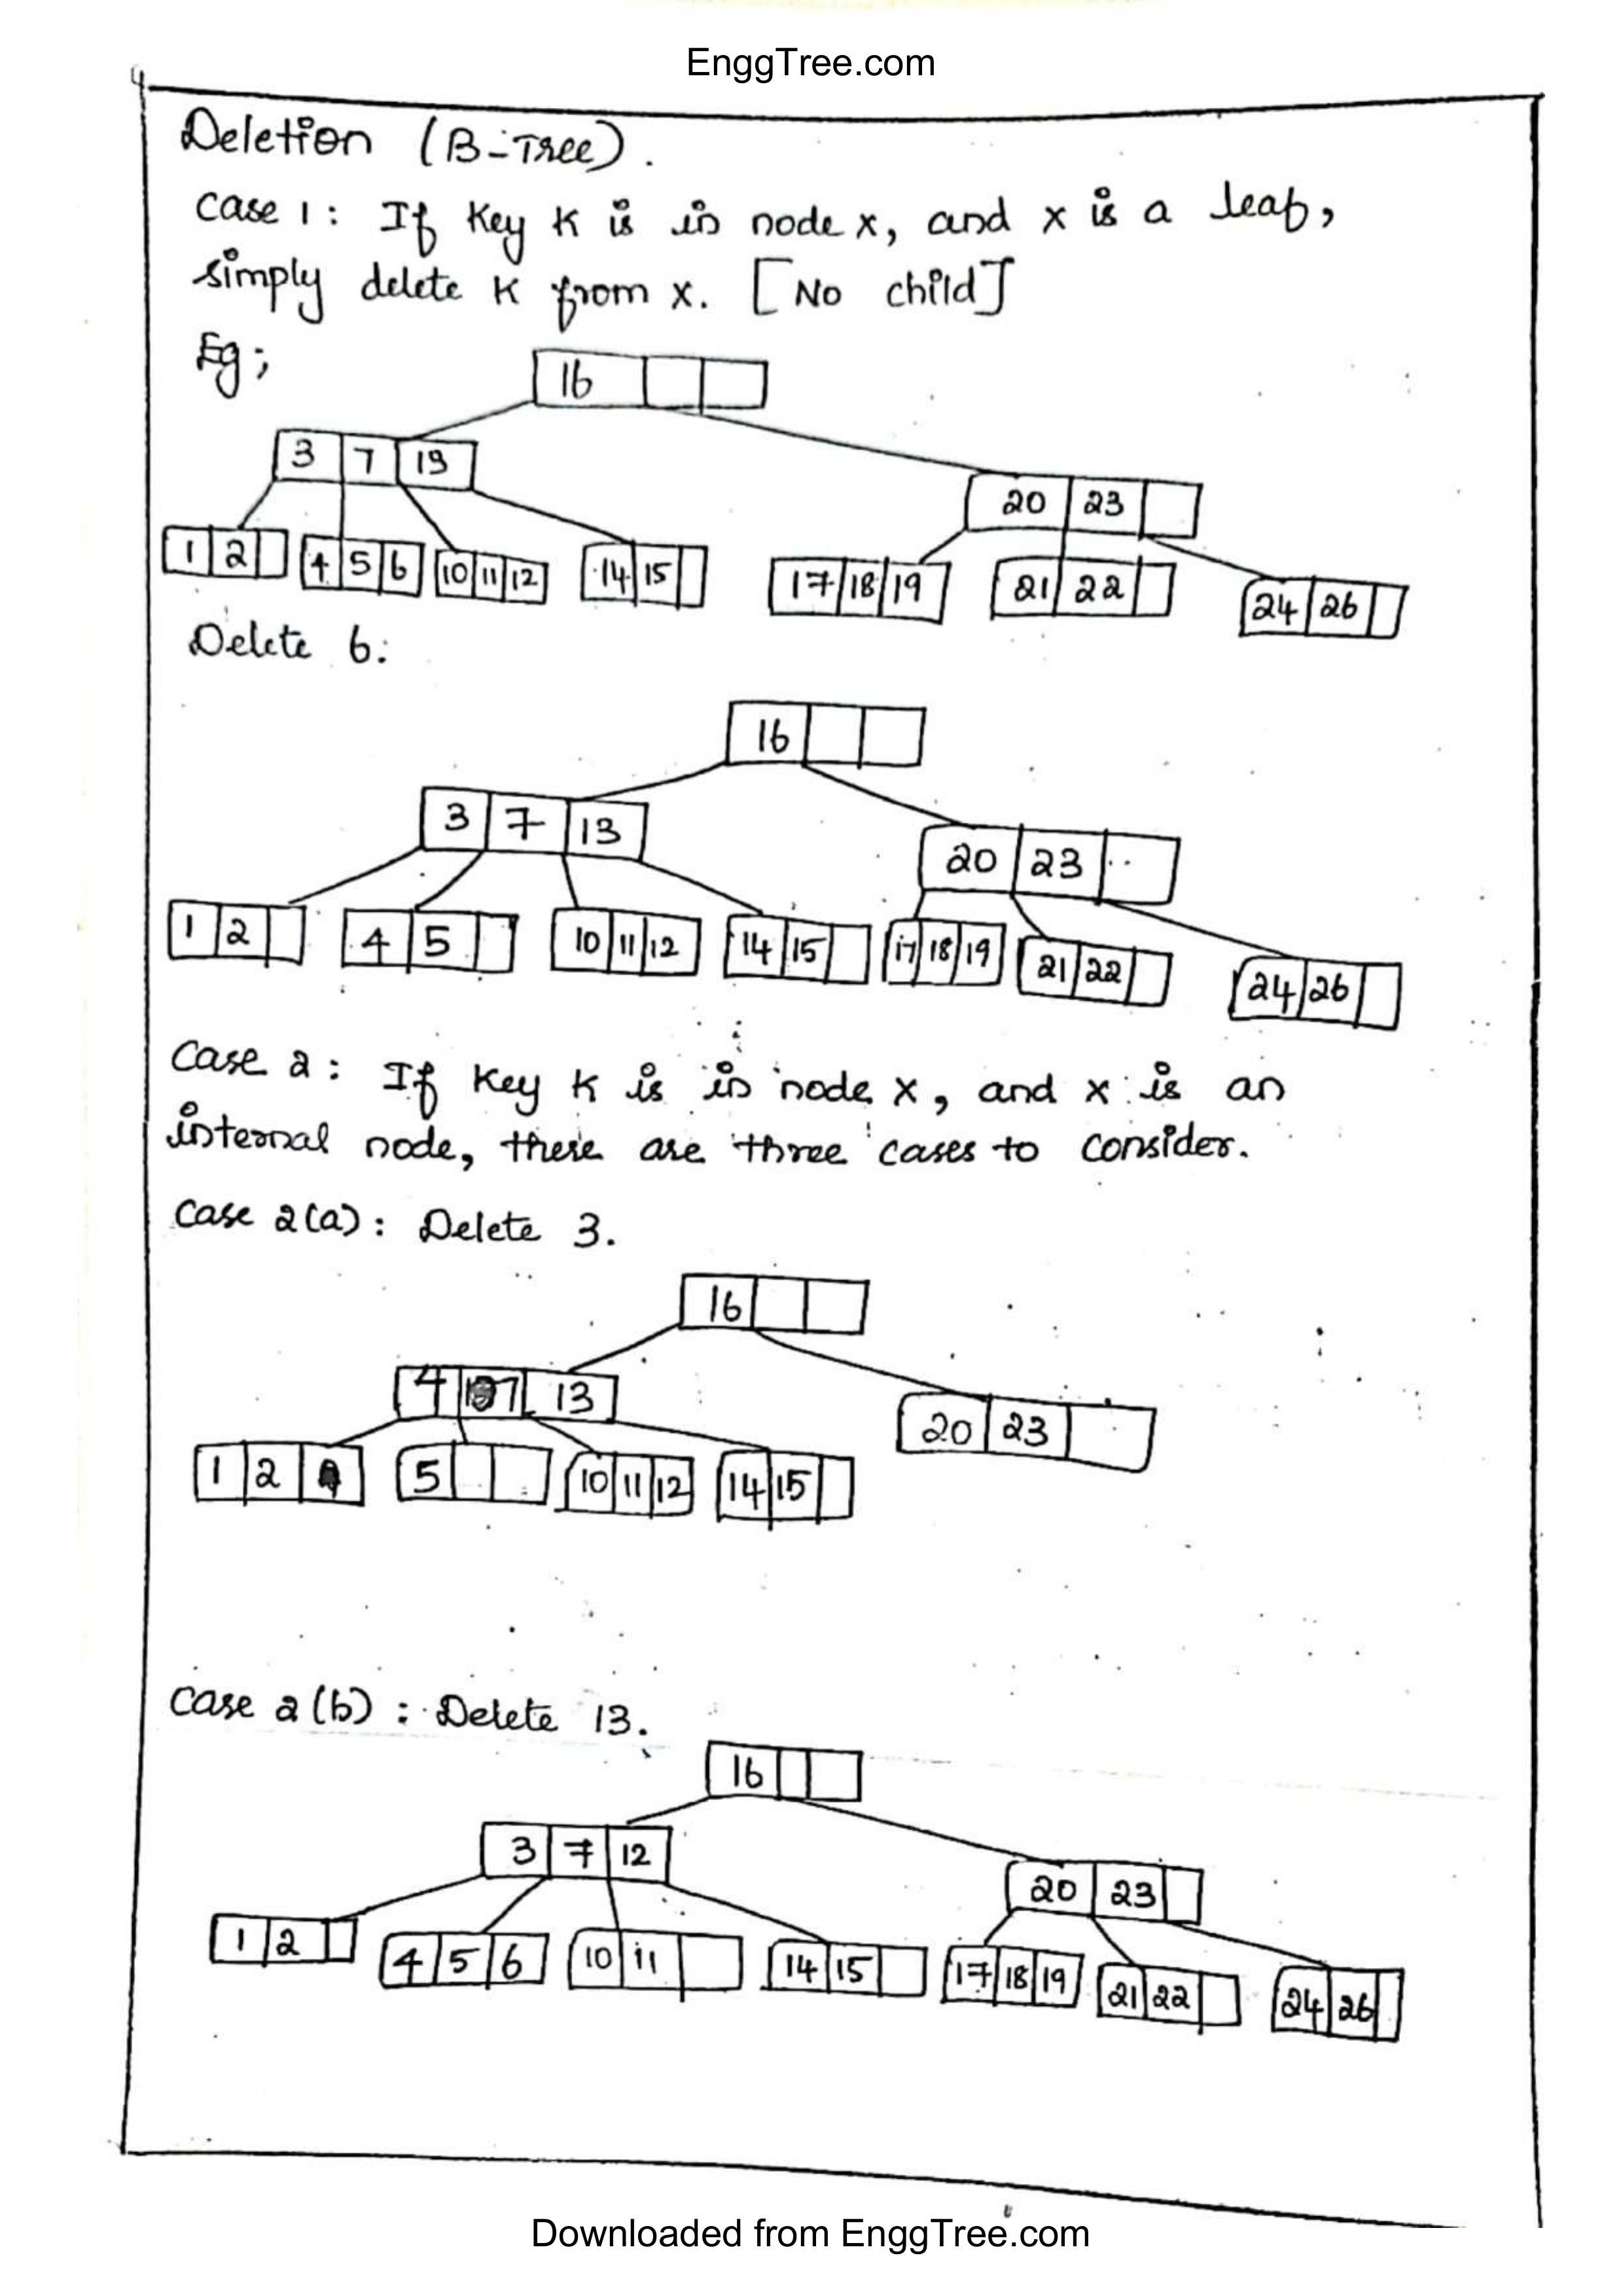 EnggTree.com
Deletion (B-Tree).
Case 1: If Key K is in node x, and x is a leaf,
simply delete K from x. [No child]
Eg;
16
3 7 13
20 23
1 2 4 5 6 10 11 12 14 15 17 18 19 21 22 24 26
Delete 6:
16
3 7 13
20 23
1 2 4 5 10 11 12 14 15 17 18 19 21 22 24 26
Case 2: If Key K is in node x, and x is an
internal node, there are three cases to consider.
Case 2(a): Delete 3.
16
4 7 13
20 23
1 2 5 10 11 12 14 15
Case 2(b): Delete 13.
16
3 7 12
20 23
1 2 4 5 6 10 11 14 15 17 18 19 21 22 24 26
Downloaded from EnggTree.com